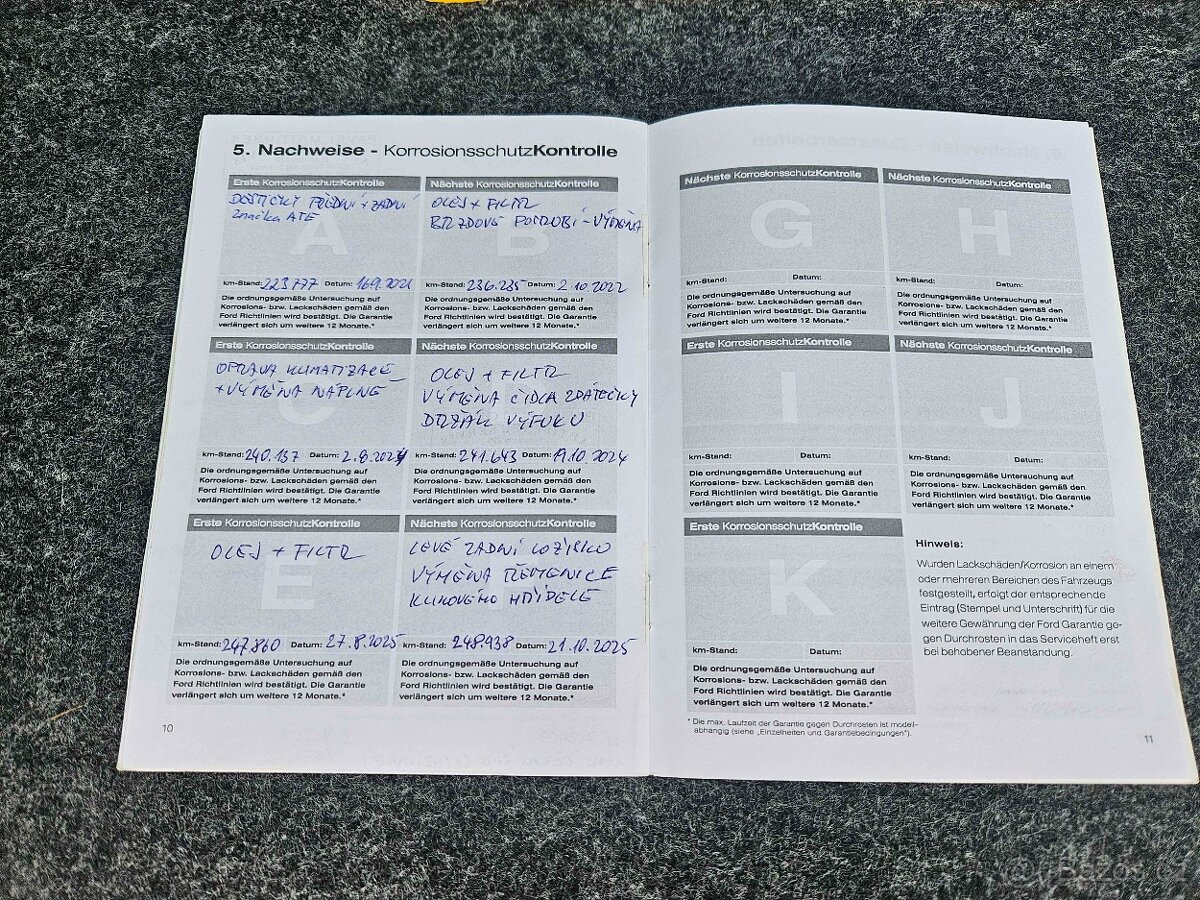 5. Nachweise - KorrosionsschutzKontrolle
Erste KorrosionsschutzKontrolle
DESTIČKY PŘEDNÍ + ZADNÍ
Značka ATE
A
km-Stand: 223777 Datum: 16.9.2021
Die ordnungsgemäße Untersuchung auf
Korrosions- bzw. Lackschäden gemäß den
Ford Richtlinien wird bestätigt. Die Garantie
verlängert sich um weitere 12 Monate.*
Nächste KorrosionsschutzKontrolle
OLEJ + FILTR
BRZDOVÉ POTRUBÍ - VÝMĚNA
B
km-Stand: 236.235 Datum: 2.10.2022
Die ordnungsgemäße Untersuchung auf
Korrosions- bzw. Lackschäden gemäß den
Ford Richtlinien wird bestätigt. Die Garantie
verlängert sich um weitere 12 Monate.*
Erste KorrosionsschutzKontrolle
OPRAVA KLIMATIZACE
+ VÝMĚNA NÁPLNĚ
C
km-Stand: 240.137 Datum: 2.8.2024
Die ordnungsgemäße Untersuchung auf
Korrosions- bzw. Lackschäden gemäß den
Ford Richtlinien wird bestätigt. Die Garantie
verlängert sich um weitere 12 Monate.*
Nächste KorrosionsschutzKontrolle
OLEJ + FILTR
VÝMĚNA ČIDLA ZPÁTEČKY
DRŽÁK VÝFUKU
km-Stand: 241.643 Datum: 19.10.2024
Die ordnungsgemäße Untersuchung auf
Korrosions- bzw. Lackschäden gemäß den
Ford Richtlinien wird bestätigt. Die Garantie
verlängert sich um weitere 12 Monate.*
Erste KorrosionsschutzKontrolle
OLEJ + FILTR
E
km-Stand: 247.860 Datum: 27.8.2025
Die ordnungsgemäße Untersuchung auf
Korrosions- bzw. Lackschäden gemäß den
Ford Richtlinien wird bestätigt. Die Garantie
verlängert sich um weitere 12 Monate.*
Nächste KorrosionsschutzKontrolle
LEVÉ ZADNÍ LOŽISKO
VÝMĚNA ŘEMENICE
KLIKOVÉHO HŘÍDELE
km-Stand: 248.938 Datum: 21.10.2025
Die ordnungsgemäße Untersuchung auf
Korrosions- bzw. Lackschäden gemäß den
Ford Richtlinien wird bestätigt. Die Garantie
verlängert sich um weitere 12 Monate.*
10
Nächste KorrosionsschutzKontrolle
G
km-Stand: Datum:
Die ordnungsgemäße Untersuchung auf
Korrosions- bzw. Lackschäden gemäß den
Ford Richtlinien wird bestätigt. Die Garantie
verlängert sich um weitere 12 Monate.*
Nächste KorrosionsschutzKontrolle
H
km-Stand: Datum:
Die ordnungsgemäße Untersuchung auf
Korrosions- bzw. Lackschäden gemäß den
Ford Richtlinien wird bestätigt. Die Garantie
verlängert sich um weitere 12 Monate.*
Erste KorrosionsschutzKontrolle
I
km-Stand: Datum:
Die ordnungsgemäße Untersuchung auf
Korrosions- bzw. Lackschäden gemäß den
Ford Richtlinien wird bestätigt. Die Garantie
verlängert sich um weitere 12 Monate.*
Nächste KorrosionsschutzKontrolle
J
km-Stand: Datum:
Die ordnungsgemäße Untersuchung auf
Korrosions- bzw. Lackschäden gemäß den
Ford Richtlinien wird bestätigt. Die Garantie
verlängert sich um weitere 12 Monate.*
Erste KorrosionsschutzKontrolle
K
km-Stand: Datum:
Die ordnungsgemäße Untersuchung auf
Korrosions- bzw. Lackschäden gemäß den
Ford Richtlinien wird bestätigt. Die Garantie
verlängert sich um weitere 12 Monate.*
Hinweis:
Wurden Lackschäden/Korrosion an einem
oder mehreren Bereichen des Fahrzeugs
festgestellt, erfolgt der entsprechende
Eintrag (Stempel und Unterschrift) für die
weitere Gewährung der Ford Garantie ge-
gen Durchrosten in das Serviceheft erst
bei behobener Beanstandung.
* Die max. Laufzeit der Garantie gegen Durchrosten ist modell-
abhängig (siehe „Einzelheiten und Garantiebedingungen").
11
Bazoš.cz